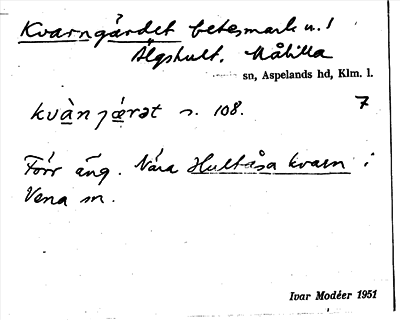 Kvarngärdet betesmark u. l
Älgshult. Målilla
sn, Aspelands hd, Klm. l.
kvàn jǽrət n. 108. 7
Förr äng. Nära Hultåsa kvarn i
Vena sn.
Ivar Modéer 1951